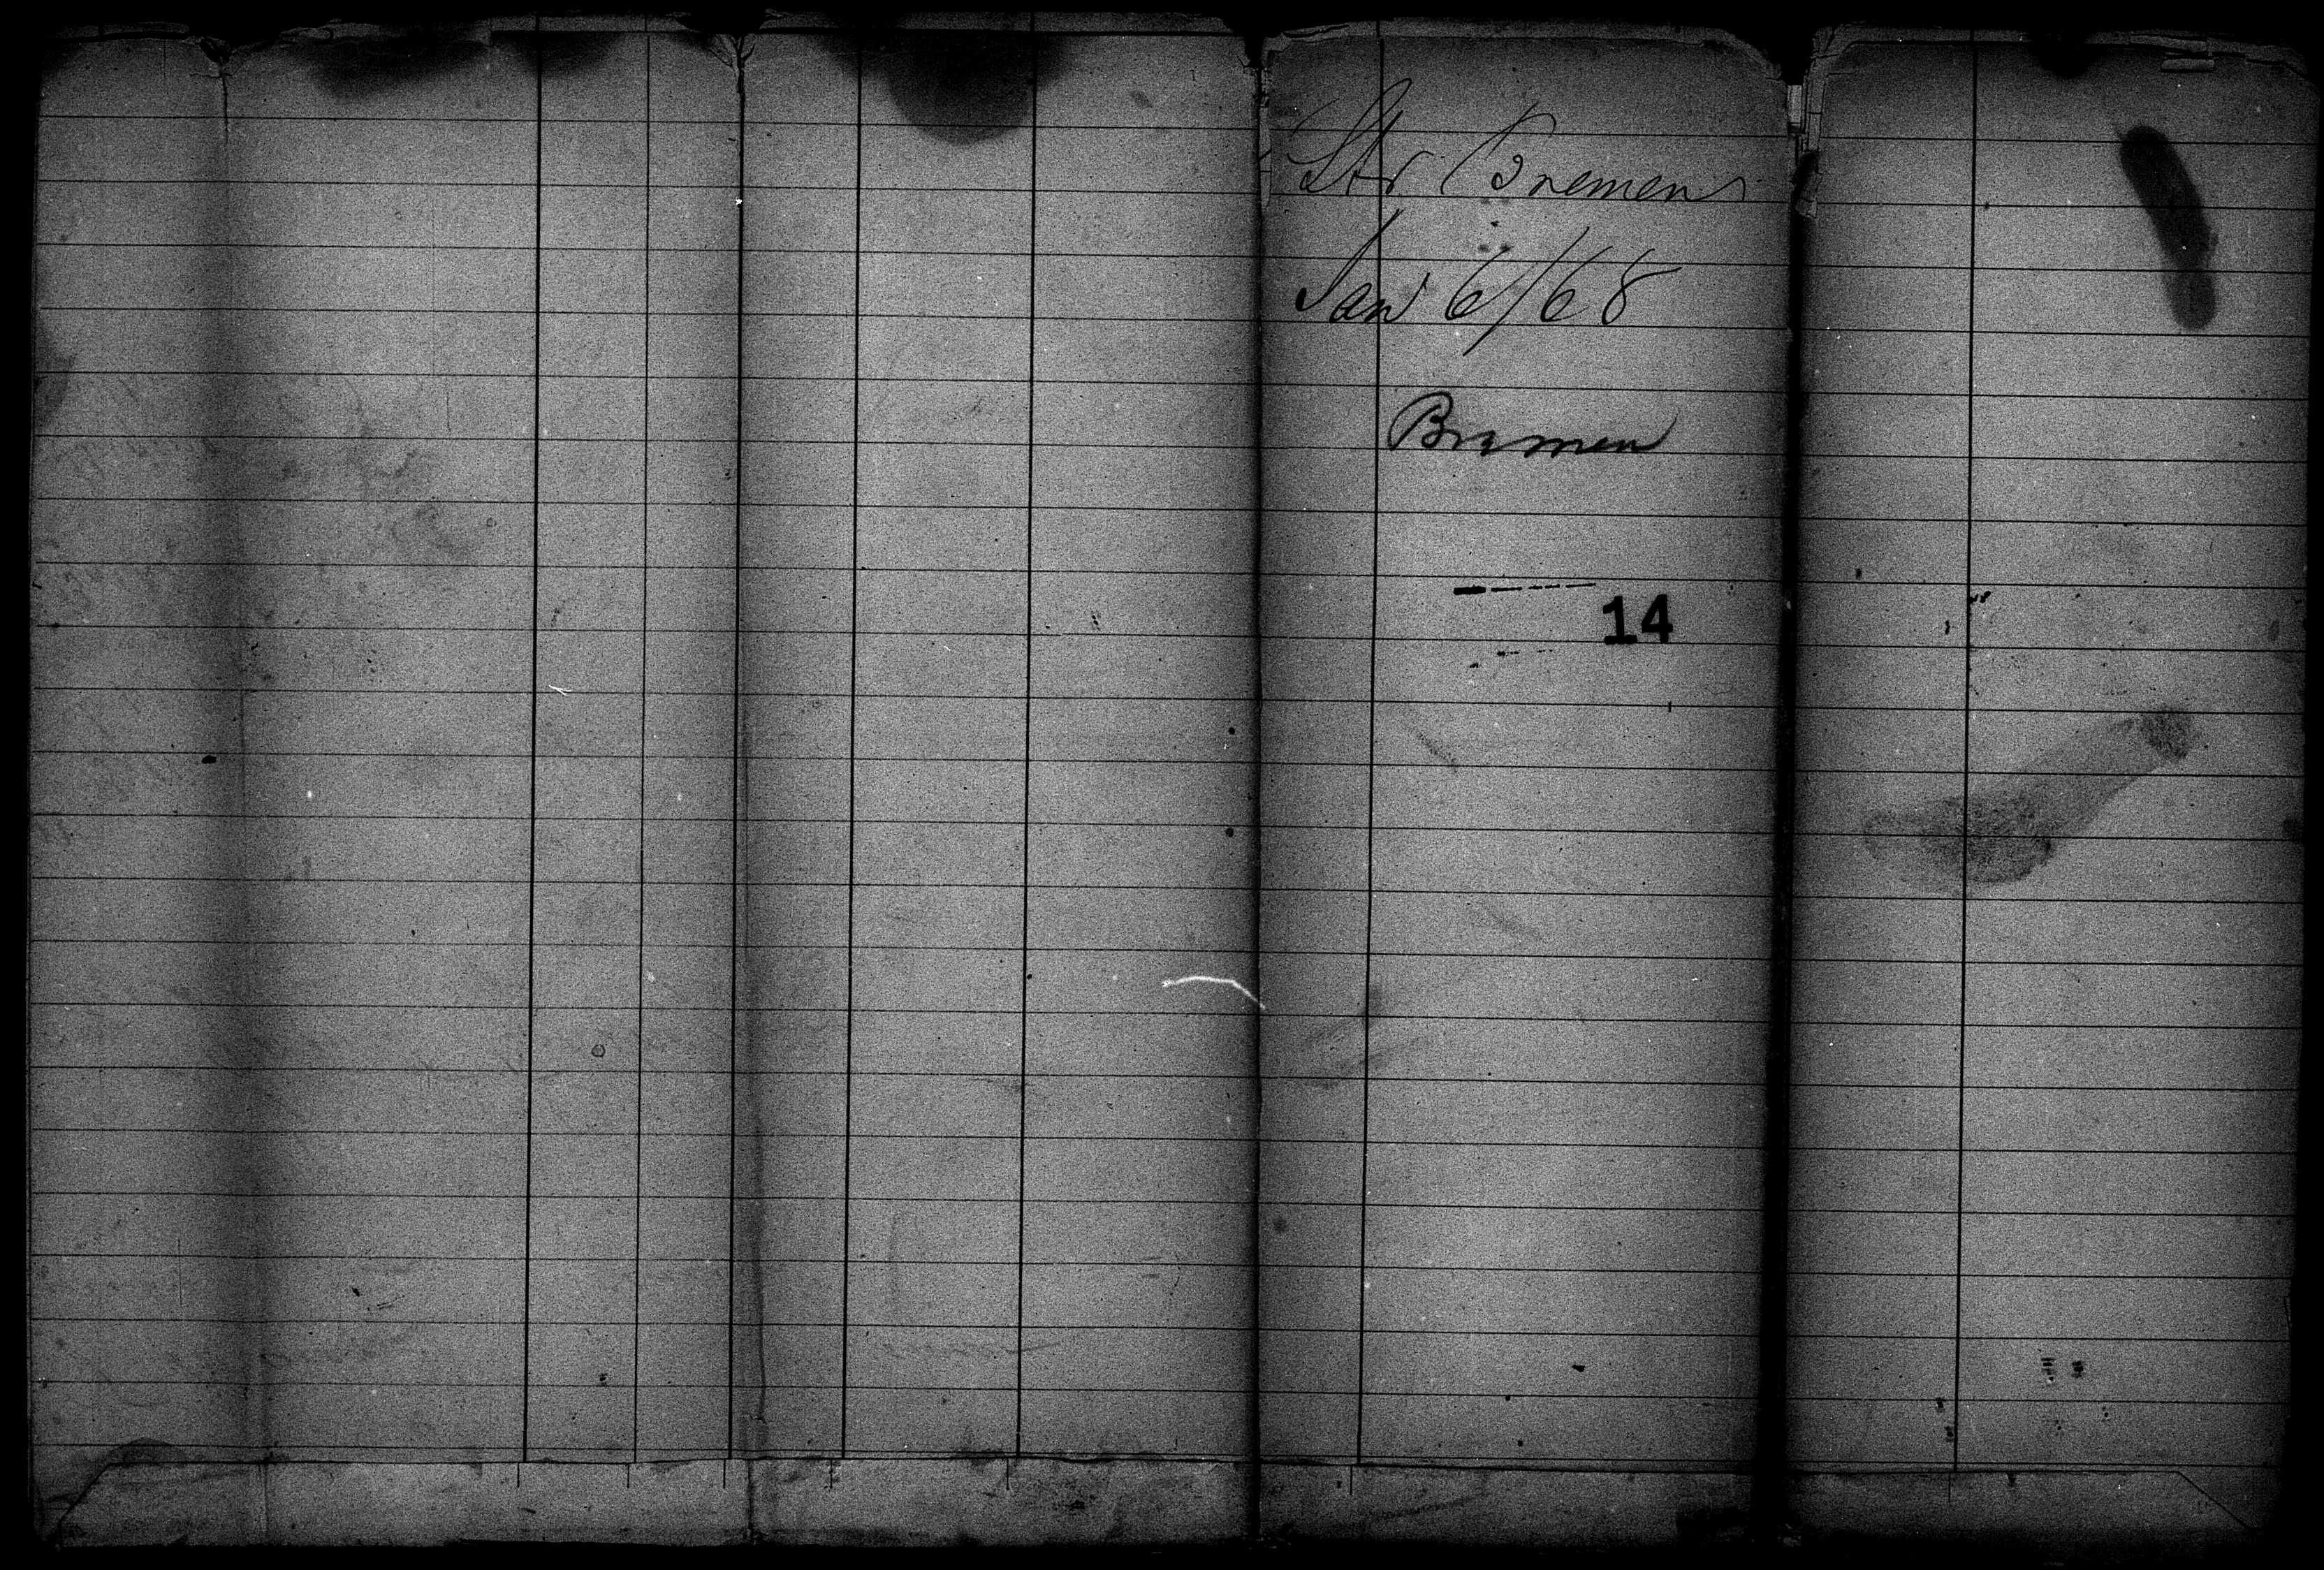 Str Bremen
Jan 6/68
Bremen
14